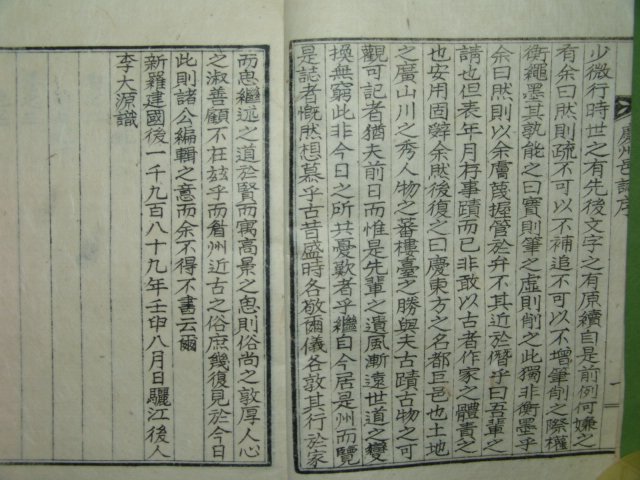 慶州邑誌序
少微行時世之有先後文字之有原續自是前例何嫌之
有余曰然則疏不可以不補追不可以不增筆削之際權
衡繩墨其孰能之曰實則筆之虛則削之此獨非衡墨乎
余曰然則以余膚蔑握管於弁不其近於僭乎曰吾輩之
請也但表年月存事蹟而已非敢以古者作家之體責之
也安用固辭余然後復之曰慶東方之名都巨邑也土地
之廣山川之秀人物之蕃樓臺之勝與夫古蹟古物之可
觀可記者猶夫前日而惟是先輩之遺風漸遠世道之變
換無窮此非今日之所共憂歎者乎繼自今居是州而覽
是誌者慨然想慕乎古昔盛時各敬爾儀各敦其行於家
而思繼述之道於賢而寓高景之思則俗尚之敦厚人心
之淑善顧不在玆乎而舊州近古之俗庶幾復見於今日
此則諸公編輯之意而余不得不書云爾
新羅建國後一千九百八十九年壬申八月日驪江後人
李大源識
一